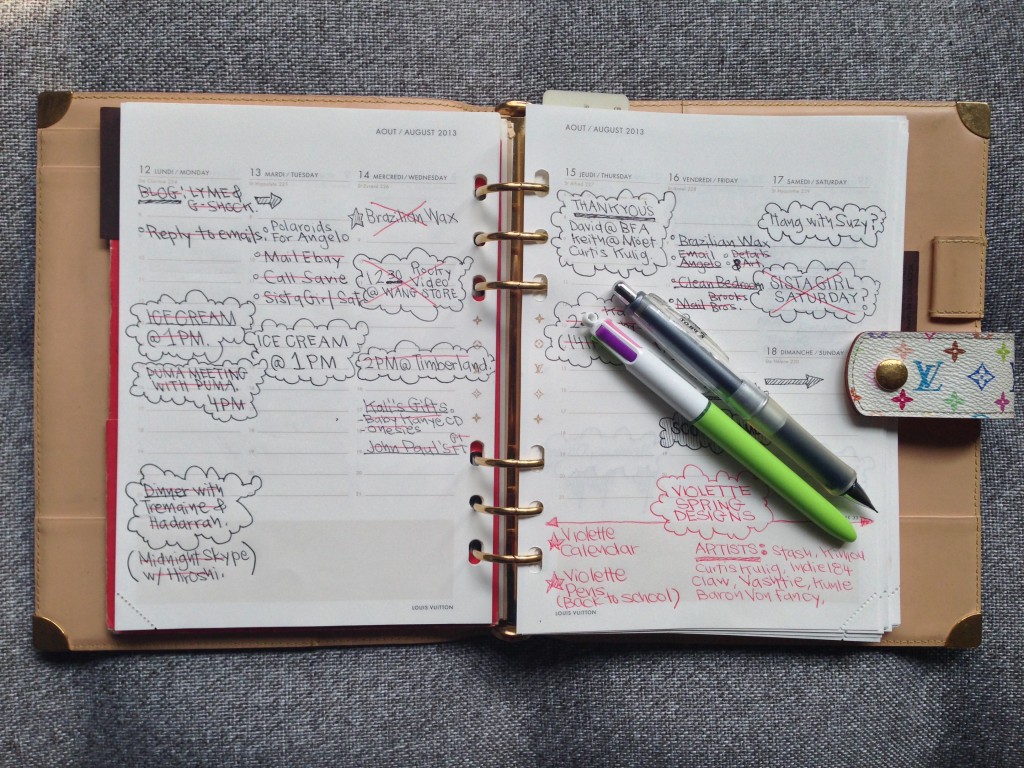 AOUT / AUGUST 2013
12 LUNDI / MONDAY
BLOG: LYME &
G-SHOCK.
Reply to emails.
ICECREAM
@ 1PM.
PUMA MEETING
WITH PUMA.
4PM
Dinner with
Tremaine &
Hadarrah.
(Midnight Skype
w/ Hiroshi.)
13 MARDI / TUESDAY
Polaroids
For Angelo
Mail Ebay
Call Savie
SistaGirl Sat
ICE CREAM
@ 1PM
14 MERCREDI / WEDNESDAY
Brazilian Wax
2:30 Rocky
Video
@ WANG STORE
2PM @ Timberland.
Kali's Gifts.
-Baby Kanye CD
-onesies
John Paul's
LOUIS VUITTON
AOUT / AUGUST 2013
15 JEUDI / THURSDAY
THANKYOUS
David @ BFA
Keith @ Moët
Curtis Kulig.
16 VENDREDI / FRIDAY
Brazilian Wax
Email Details
Angelo & Art
Clean Bedroom
Brooks
Mail Bros.
17 SAMEDI / SATURDAY
Hang with Suzy?
SISTAGIRL
SATURDAY?
18 DIMANCHE / SUNDAY
VIOLETTE
SPRING
DESIGNS
Violette
Calendar
Violette
Pens
(Back to school)
ARTISTS: Stash,
Curtis Kulig, Indie184
Claw, Vashtie, Kunle
Baron Von Fancy.
LOUIS VUITTON
LV